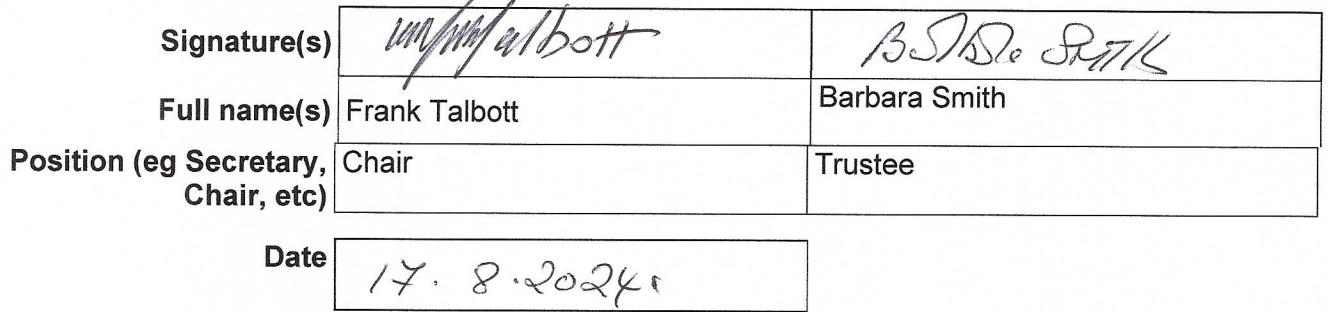 Signature(s) Talbott B Smith
Full name(s) Frank Talbott Barbara Smith
Position (eg Secretary, Chair Trustee
Chair, etc)
Date 17. 8. 2024.